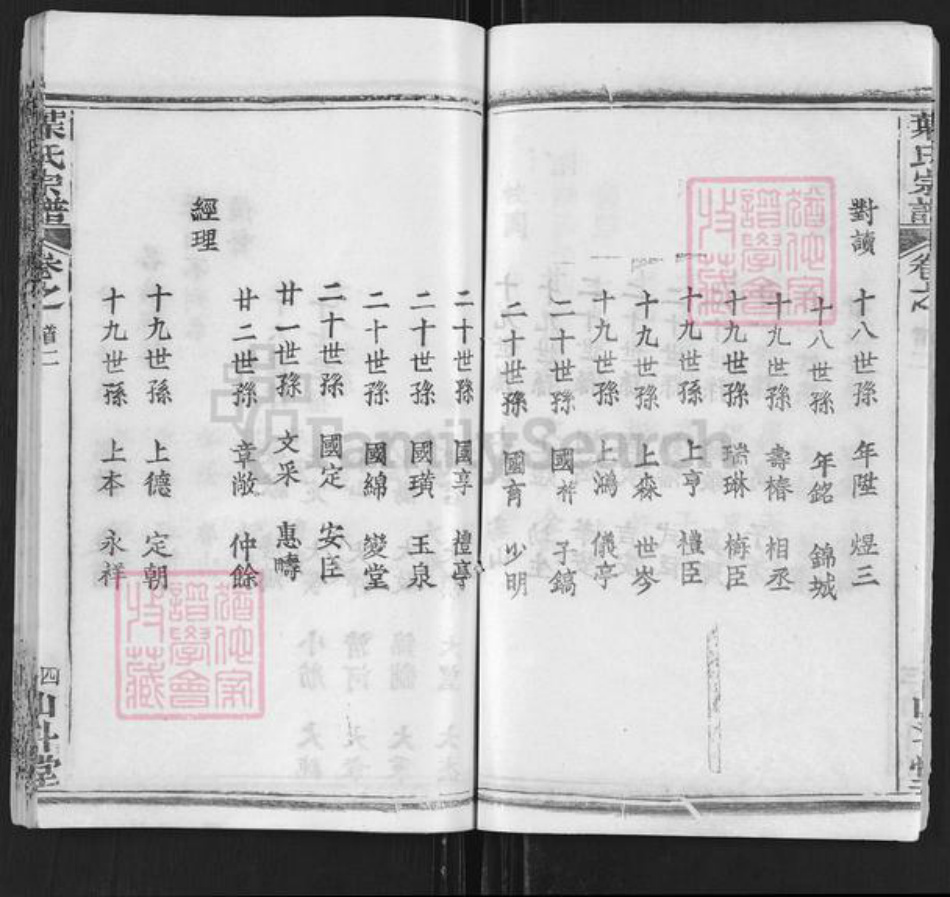 葉氏宗譜
卷之
對讀
十八世孫 年陞 煜三
十八世孫 年銘 錦城
十九世孫 壽椿 相丞
十九世孫 瑞琳 梅臣
十九世孫 上亨 禮臣
十九世孫 上森 世岑
十九世孫 上鴻 儀亭
二十世孫 國祥 子鎬
二十世孫 國育 少明
二十世孫 國享 禮亭
二十世孫 國璜 玉泉
二十世孫 國綿 燮堂
二十世孫 國定 安臣
廿一世孫 文采 惠疇
廿二世孫 章敞 仲餘
經理
十九世孫 上德 定朝
十九世孫 上本 永祥
葉氏宗譜
卷之
首二
四
FamilySearch